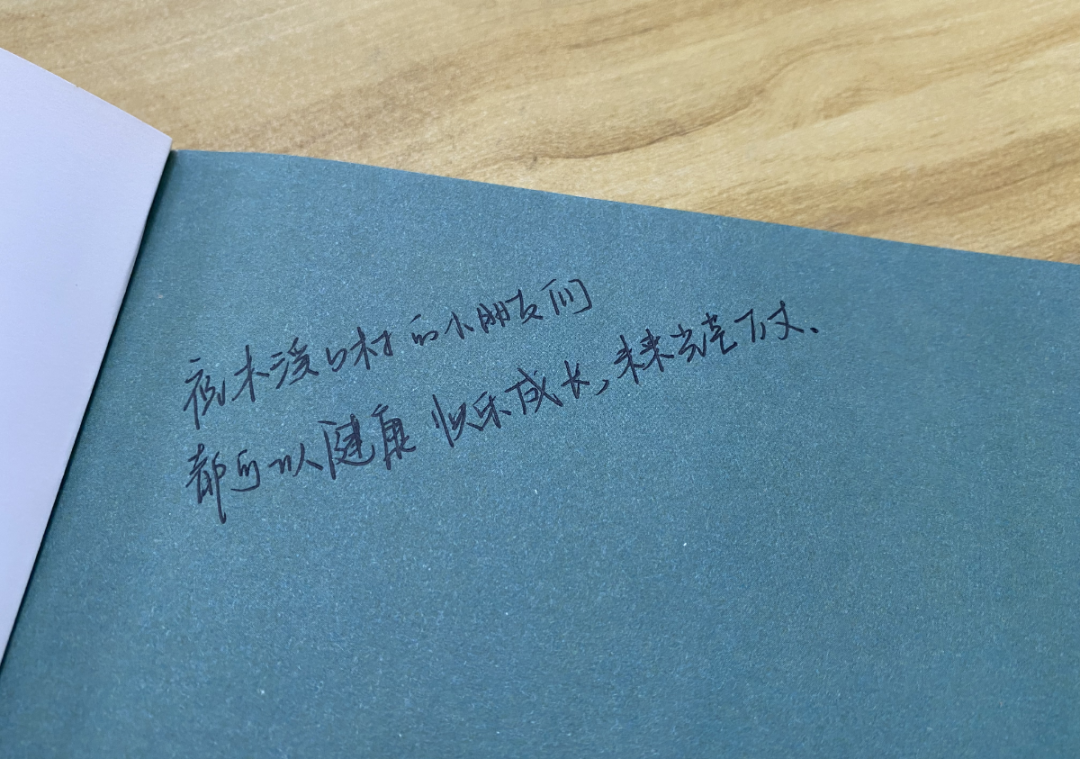 祝木渎口村的小朋友们
都可以健康快乐成长,未来光芒万丈、